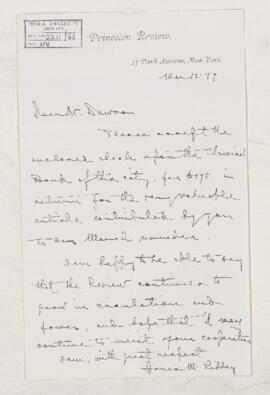 McGILL UNIVERSITY
ARCHIVES
ACC. NO. 2211/66
REF. 44
Princeton Review.
37 Park Avenue, New York.
Mar 12. 79
Dear Dr. Dawson
Please accept the
enclosed check upon the
Bank of this city, for $195. in
return for the very valuable
article contributed by you
to our March number.
I am happy to be able to say
that the Review continues to
grow in circulation and
power, and hope that it may
continue to merit your cooperation
I am, with great respect
Jonas M. Libbey